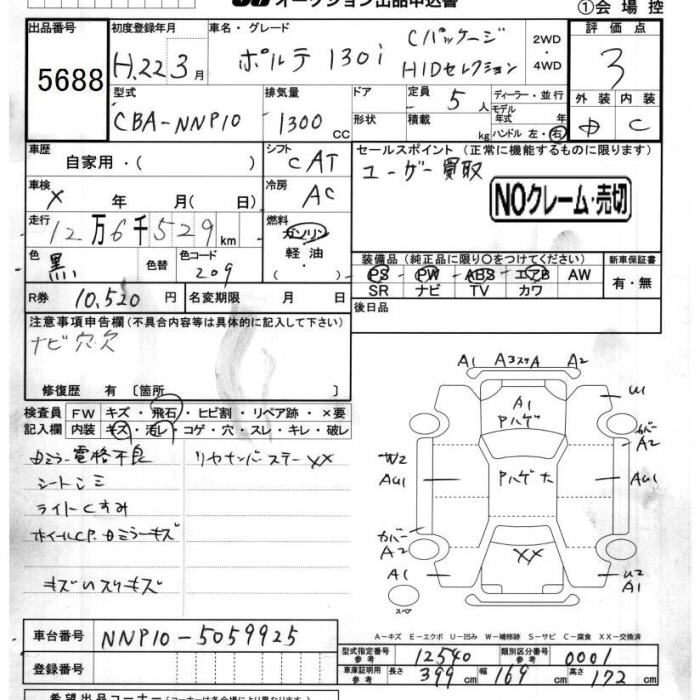 オークション出品申込書
①会場控
出品番号
5688
初度登録年月
H.22 3月
車名・グレード
ポルテ 130i
Cパッケージ
HIDセレクション
2WD
・
4WD
評価点
3
外装 内装
C
型式
CBA-NNP10
排気量
1300 CC
ドア
形状
定員 5人
積載 kg
ディーラー・並行
モデル
年式 年
ハンドル 左・右
車歴
自家用・( )
シフト
CAT
セールスポイント (正常に機能するものに限ります)
ユーザー買取
NOクレーム・売切
車検
X 年 月( 日)
冷房
AC
走行
12万6千529km
燃料
ガソリン
軽油
・
色
黒
色替
色コード
209
装備品 (純正品に限り○をつけてください)
新車保証書
PS PW ABS エアB AW
SR ナビ TV カワ
有・無
R券 10,520円
名変期限 月 日
後日品
注意事項申告欄(不具合内容等は具体的に記入して下さい)
ナビ穴・欠
修復歴 有 〔箇所 〕
検査員 FW キズ・飛石・ヒビ割・リペア跡・×要
記入欄 内装 キズ・汚レ・コゲ・穴・スレ・キレ・破レ
ミラー電格不良
リヤナンバーステーXX
シートシミ
ライトくすみ
ホイールCP. ミラーキズ
キズ スリキズ
A1 A3スリA A2
A1
Pハゲ
U1
カバー
A2
W2
AU1
Pハゲ大
AU1
カバー
A2
XX
A1
U2
A1
スペア
A－キズ E－エクボ U－凹み W－補修跡 S－サビ C－腐食 XX－交換済
車台番号 NNP10-5059925
登録番号
型式指定番号
参考
12540
類別区分番号
参考
0001
車庫証明用
参考
長さ 399cm 幅 169cm 高さ 172cm
希望出品コーナー(コーナーは各会場により異なります)